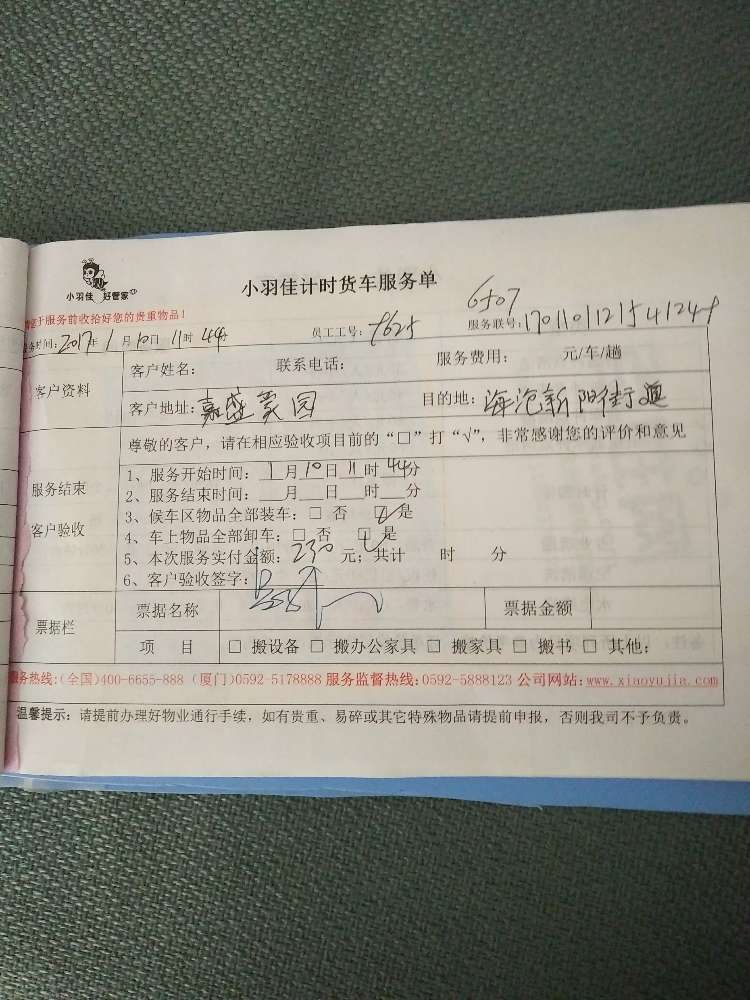 小羽佳 好管家
小羽佳计时货车服务单
于服务前收拾好您的贵重物品！
6507
务时间：2017年1月10日11时44分 员工工号：9625 服务联号：170110112154124
客户资料
客户姓名： 联系电话： 服务费用： 元/车/趟
客户地址：嘉盛豪园 目的地：海沧新阳街道
服务结束
客户验收
尊敬的客户，请在相应验收项目前的“□”打“√”，非常感谢您的评价和意见
1、服务开始时间：1月10日11时44分
2、服务结束时间：__月__日__时__分
3、候车区物品全部装车：□ 否 ☑ 是
4、车上物品全部卸车：□ 否 ☑ 是
5、本次服务实付金额：230元；共计 时 分
6、客户验收签字：
票据栏
票据名称 票据金额
项 目 □ 搬设备 □ 搬办公家具 □ 搬家具 □ 搬书 □ 其他：
务热线：(全国)400-6655-888 (厦门)0592-5178888 服务监督热线：0592-5888123 公司网站：www.xiaoyujia.com
温馨提示：请提前办理好物业通行手续，如有贵重、易碎或其它特殊物品请提前申报，否则我司不予负责。